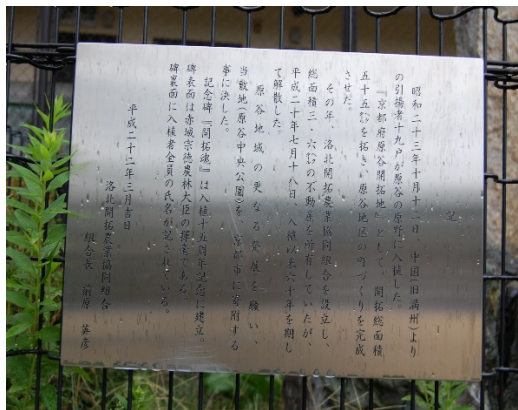 記
昭和二十三年十月十二日　中国(旧満州)より
の引揚者十九戸が原谷の原野に入植した。
『京都府原谷開拓地』として、開拓総面積
五十五㌶を拓き、原谷地区の町づくりを完成
させた。
その年、洛北開拓農業協同組合を設立し、
総面積三・六㌶の不動産を所有していたが、
平成二十年七月十八日、入植以来六十年を期し
て解散した。
原谷地域の更なる発展を願い、
当敷地(原谷中央公園)を、京都市に寄附する
事に決した。
記念碑『開拓魂』は入植十五周年記念に建立。
碑表面は赤城宗徳農林大臣の揮毫である
碑裏面に入植者全員の氏名が記されている。
平成二十二年三月吉日
洛北開拓農業協同組合
組合長　前原　英彦